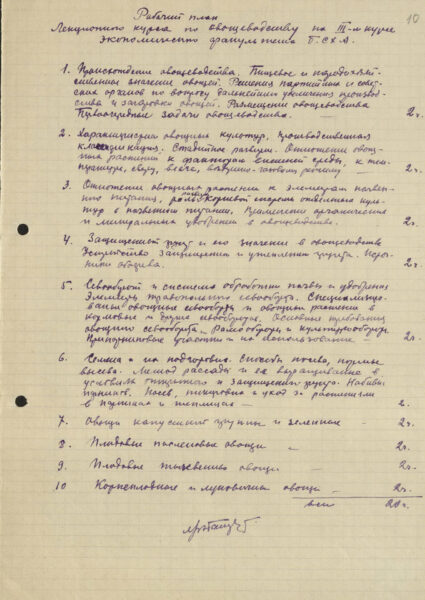 10
Рабочий план
Лекционного курса по овощеводству на III-м курсе
экономического факультета Б.С.Х.А.
1. Происхождение овощеводства. Пищевое и народохозяй-
ственное значение овощей. Решения партийных и совет-
ских органов по вопросу дальнейшего увеличения производ-
ства и заготовки овощей. Размещение овощеводства
Первоочередные задачи овощеводства. — 2 ч.
2. Характеристика овощных культур, производственная
классификация. Стадийное развитие. Отношение овощ-
ных растений к факторам внешней среды, к тем-
пературе, свету, влаге, воздушно-газовому режиму — 2 ч.
3. Отношение овощных растений к элементам почвен-
ного питания, роль корневой системы отдельных куль-
тур в почвенном питании. Применение органических
и минеральных удобрений в овощеводстве. 2 ч.
4. Защищенный грунт и его значение в овощеводстве
Устройство защищенного и утепленного грунта. Источ-
ники обогрева. 2 ч.
5. Севооборот и система обработки почвы и удобрения
Элементы правильного севооборота. Специализиро-
ванные овощные севообороты и овощные растения в
кормовых и других севооборотах. Основные требования
овощного севооборота. Рамооборот и культурооборот
Приусадебные участки и их использование — 2 ч.
6. Семена и их подготовка. Способы посева, нормы
высева. Метод рассады и ее выращивание в
условиях открытого и защищенного грунта. Набивка
парников. Посев, пикировка и уход за растениями
в парниках и теплицах — 2.
7. Овощи капустной группы и зеленные — 2 ч.
8. Плодовые пасленовые овощи — 2 ч.
9. Плодовые тыквенные овощи — 2 ч.
10 Корнеплодные и луковичные овощи — 2 ч.
всего 20 ч.